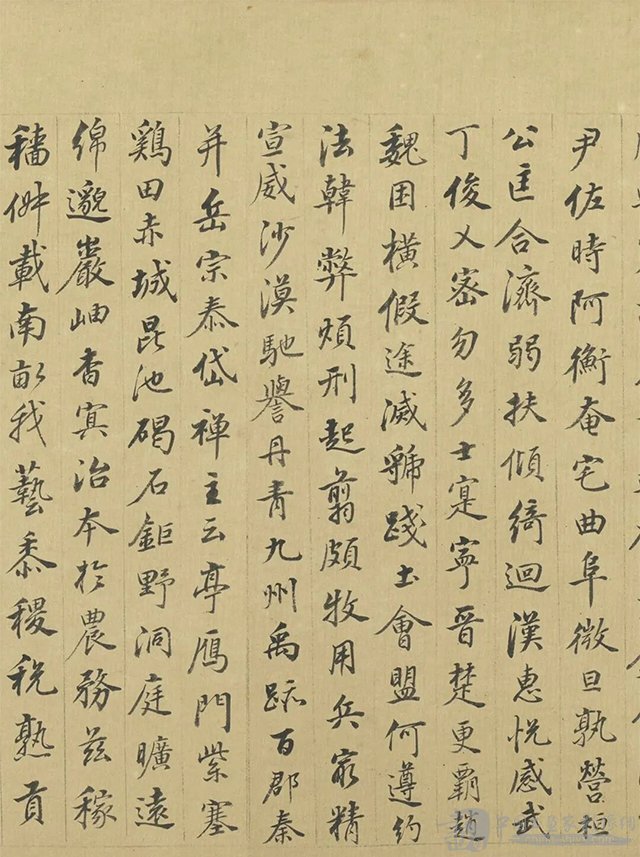 尹佐時阿衡奄宅曲阜微旦孰營桓
公匡合濟弱扶傾綺迴漢惠悅感武
丁俊乂密勿多士寔寧晉楚更霸趙
魏困橫假途滅虢踐土會盟何遵約
法韓弊煩刑起翦頗牧用兵最精
宣威沙漠馳譽丹青九州禹跡百郡秦
并岳宗泰岱禪主云亭鴈門紫塞
鷄田赤城昆池碣石鉅野洞庭曠遠
綿邈巖岫杳冥治本於農務茲稼
穡俶載南畝我藝黍稷稅熟貢